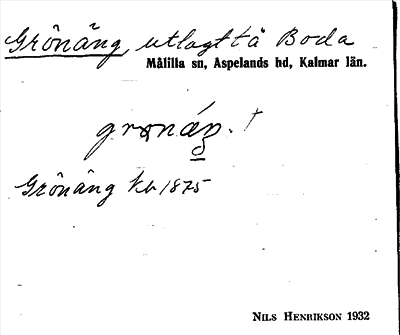 Grönäng, utlagt tå Boda
Målilla sn, Aspelands hd, Kalmar län.
Grönäng kb 1875
NILS HENRIKSON 1932